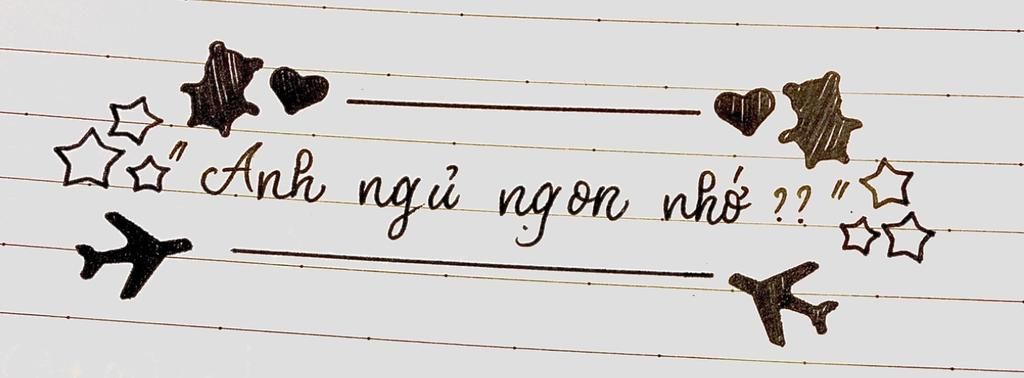 " Anh ngủ ngon nhớ ?? "